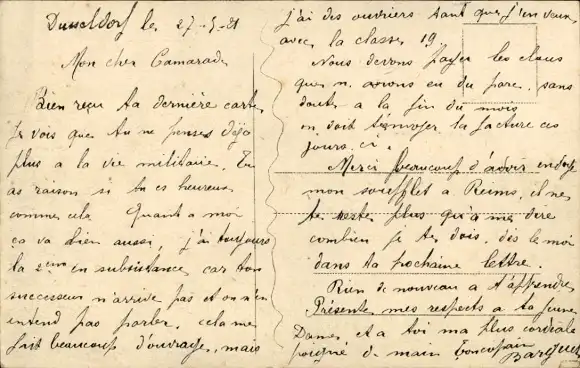 Dusseldorf le 27-5-21
Mon cher Camarade
Bien reçu ta dernière carte
Je vois que tu ne penses déjà
plus a la vie militaire. Tu
as raison si tu es heureux
comme cela Quant a moi
ça va bien aussi, j'ai toujours
la 2eme en subsistance car ton
successeur n'arrive pas et on n'en
entend pas parler. cela me
fait beaucoup d'ouvrage, mais
j'ai des ouvriers tant que j'en veux
avec la classe 19
Nous devons payer les clous
que n. avons eu du parc, sans
doute a la fin du mois
on doit t'envoyer la facture ces
jours. ci.
Merci beaucoup d'avoir
mon soufflet a Reims, il ne
te reste plus qu'à me dire
combien je te dois, dis le moi
dans ta prochaine lettre.
Rien de nouveau a t'apprendre
Présente mes respects a ta jeune
Dame, et a toi ma plus cordiale
poigné de main Ton copain